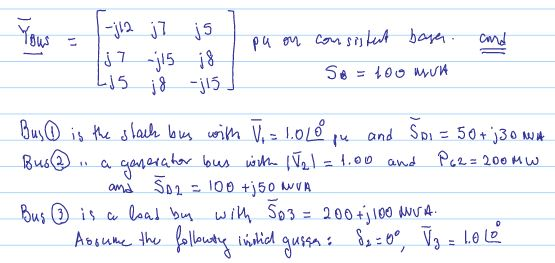 Y̅Bus = [ -j12 j7 j5
j7 -j15 j8
j5 j8 -j15 ] pu on consistent bases. and
SB = 100 MVA
Bus① is the slack bus with V̅1 = 1.0∠0° pu and S̅D1 = 50+j30 MVA
Bus② " a generator bus with |V̅2| = 1.00 and PG2 = 200 MW
and S̅D2 = 100 + j50 MVA
Bus③ is a load bus with S̅D3 = 200+j100 MVA.
Assume the following initial guess: δ2=0°, V̅3 = 1.0∠0°